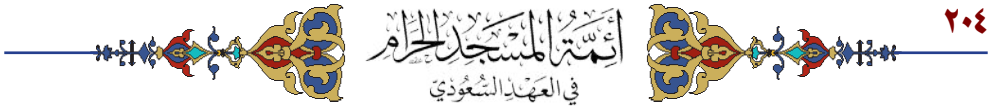 ٢٠٤
أَئِمَّةُ المَسْجِدِ الحَرَامِ
في العَهْدِ السُّعُوْدِيّ